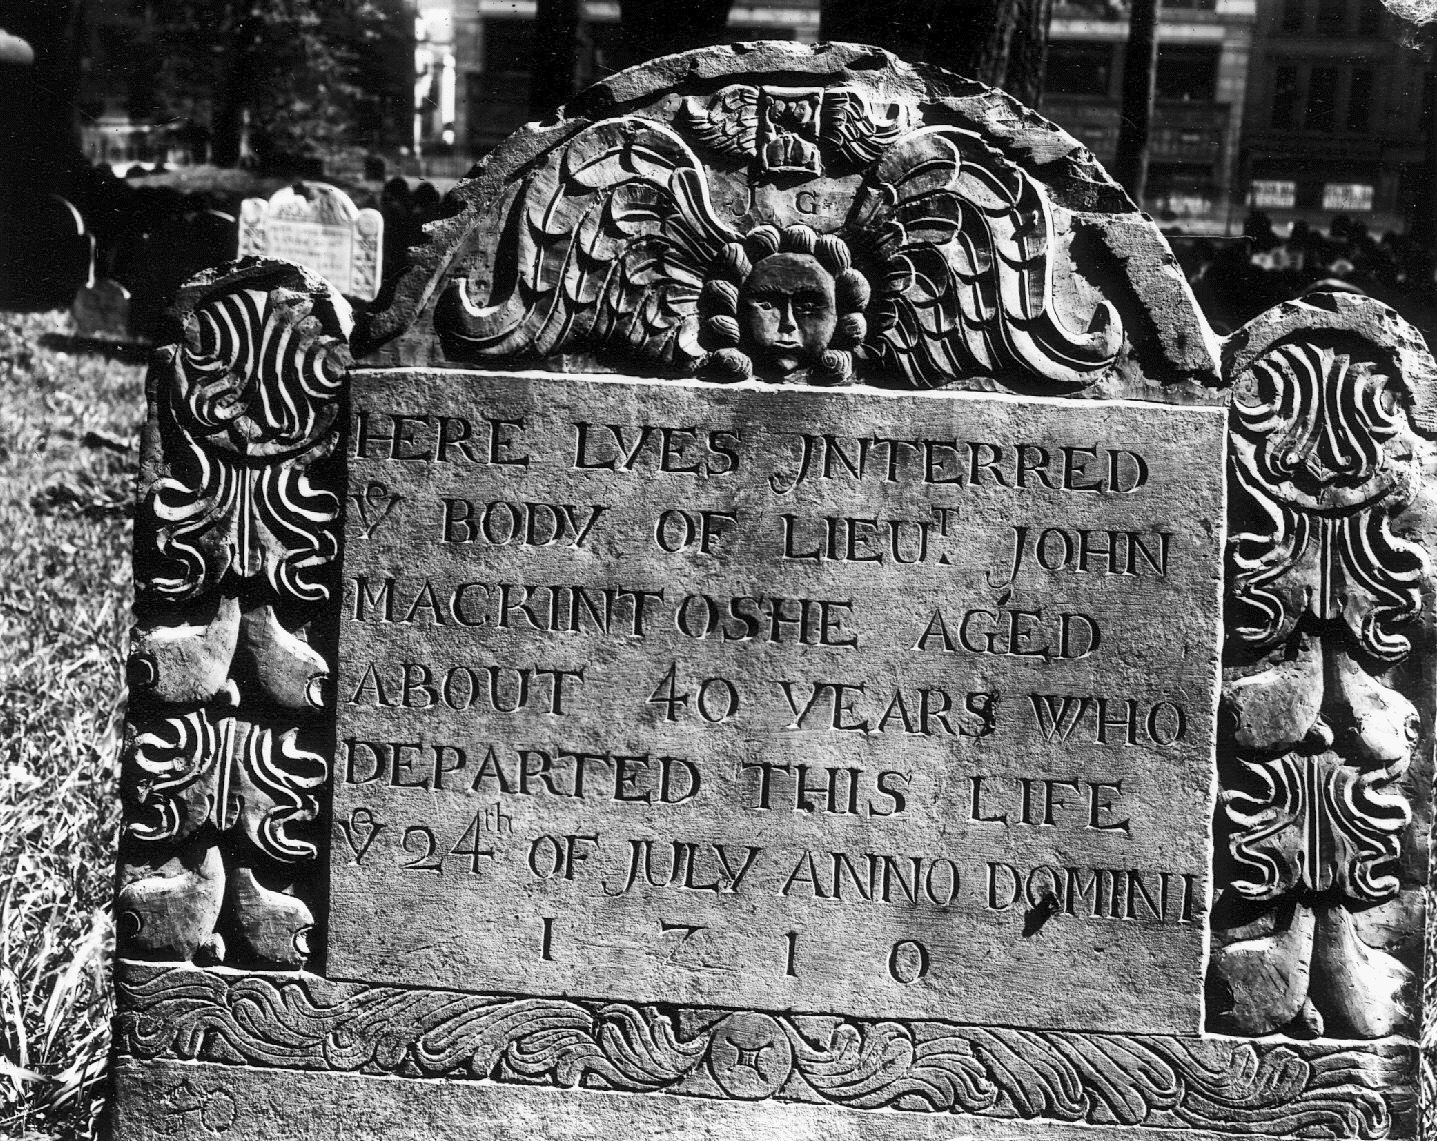 J·G·
HERE LYES JNTERRED
yͤ BODY OF LIEUᵀ. JOHN
MACKINTOSHE AGED
ABOUT 40 YEARS WHO
DEPARTED THIS LIFE
yͤ 24th OF JULY ANNO DOMINI
1710